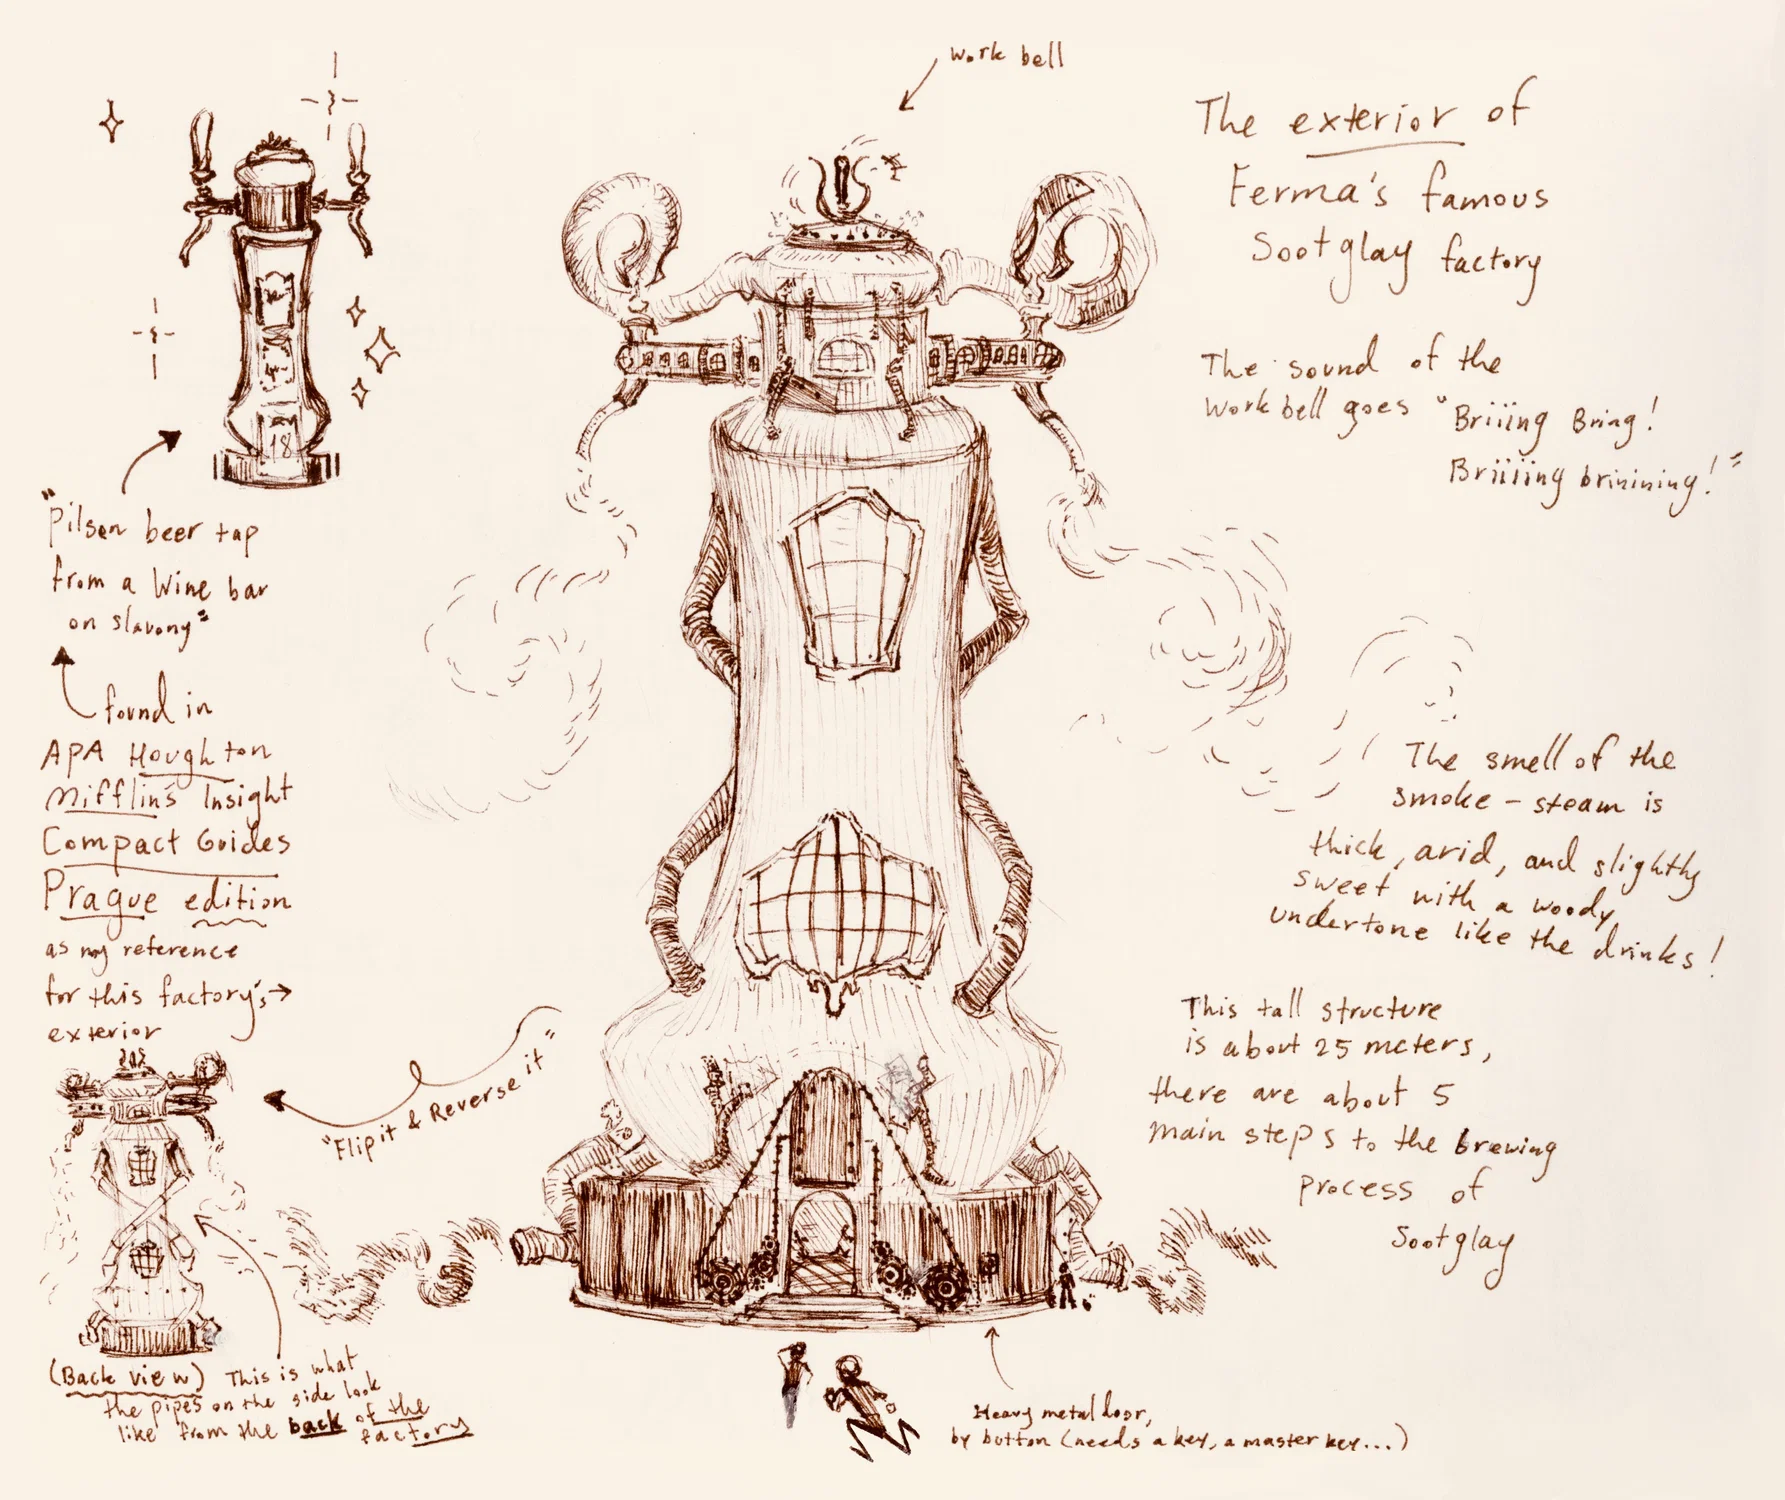 work bell
The exterior of
Ferma's famous
Sootglay factory
The sound of the
work bell goes "Briiing Bring!
Briiiing brinining!"
18
"Pilsen beer tap
from a Wine bar
on slavony"
found in
APA Houghton
Mifflin's Insight
Compact Guides
Prague edition
as my reference
for this factory's →
exterior
"Flip it & Reverse it"
The smell of the
smoke - steam is
thick, arid, and slightly
sweet with a woody
undertone like the drinks!
This tall structure
is about 25 meters,
there are about 5
main steps to the brewing
process of
Sootglay
(Back view) This is what
the pipes on the side look
like from the back of the
factory
Heavy metal door,
by button (needs a key, a master key...)